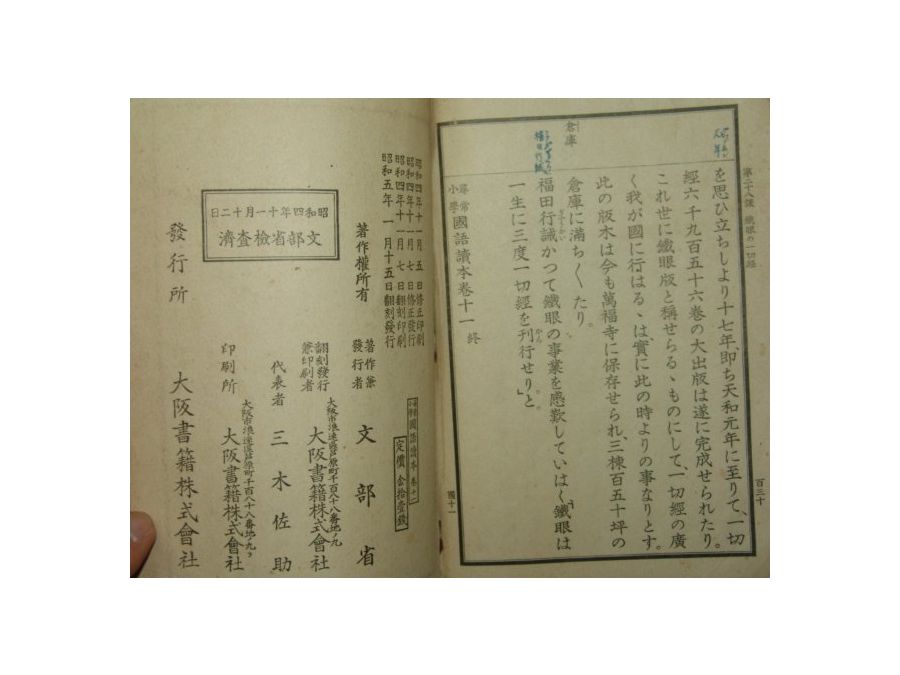 第二十八課 鐵眼の一切經
百三十
を思ひ立ちしより十七年、即ち天和元年に至りて、一切
經六千九百五十六卷の大出版は遂に完成せられたり。
これ世に鐵眼版と稱せらるゝものにして、一切經の廣
く我が國に行はるゝは、實に此の時よりの事なりとす。
此の版木は今も萬福寺に保存せられ、三棟百五十坪の
倉庫に滿ち〱たり。
福田行誡かつて鐵眼の事業を感歎していはく「鐵眼は
一生に三度一切經を刊行せり」と
倉庫
福田行誡
尋常小學國語讀本卷十一 終
國十一
昭和四年十一月五日修正印刷
昭和四年十一月七日修正發行
昭和四年十一月七日翻刻印刷
昭和五年一月十五日翻刻發行
國語讀本卷十一
定價金拾壹錢
著作權所有
著作兼發行者 文部省
翻刻發行兼印刷者
大阪市浪速區芦原町千百八十八番地ノ九
大阪書籍株式會社
代表者 三木佐助
印刷所
大阪市浪速區芦原町千百八十八番地ノ九
大阪書籍株式會社
昭和四年十一月十二日
文部省檢査濟
發行所 大阪書籍株式會社